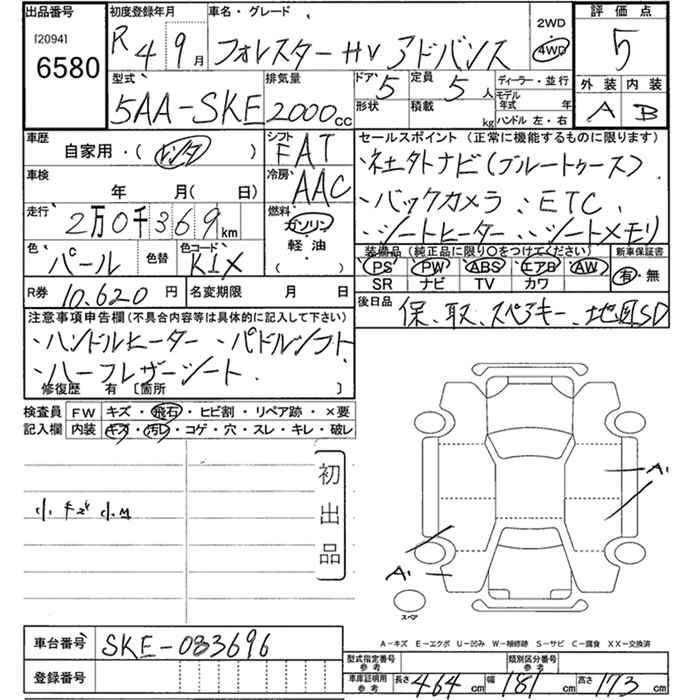 出品番号
[2094]
6580
初度登録年月
R 4 9月
車名・グレード
フォレスターHV アドバンス
2WD
4WD
評価点
5
外装 内装
A B
型式
5AA-SKE
排気量
2000cc
ドア 5
形状
定員 5人
積載 kg
ディーラー・並行
モデル年式 年
ハンドル 左・右
車歴
自家用・(レンタ)
シフト
FAT
車検
年 月(日)
冷房
AAC
走行
2万0千369km
燃料
ガソリン
軽油
( )
色
パール
色替
色コード
K1X
R券 10.620円
名変期限 月 日
セールスポイント(正常に機能するものに限ります)
・社外ナビ(ブルートゥース).
・バックカメラ、ETC、
・シートヒーター、シートメモリ
装備品(純正品に限り〇をつけてください)
PS PW ABS エアB AW
SR ナビ TV カワ
新車保証書
有・無
後日品
保、取、スペアキー、地図SD
注意事項申告欄(不具合内容等は具体的に記入して下さい)
・ハンドルヒーター・パドルシフト
・ハーフレザーシート.
修復歴 有〔箇所 〕
検査員 FW キズ・飛石・ヒビ割・リペア跡・×要
記入欄 内装 キズ・汚レ・コゲ・穴・スレ・キレ・破レ
初出品
小キズ小凹
A1
A1
スペア
車台番号 SKE-083696
登録番号
A-キズ E-エクボ U-凹み W-補修跡 S-サビ C-腐食 XX-交換済
型式指定番号
参考
類別区分番号
参考
車庫証明用
参考
長さ464cm 幅181cm 高さ173cm